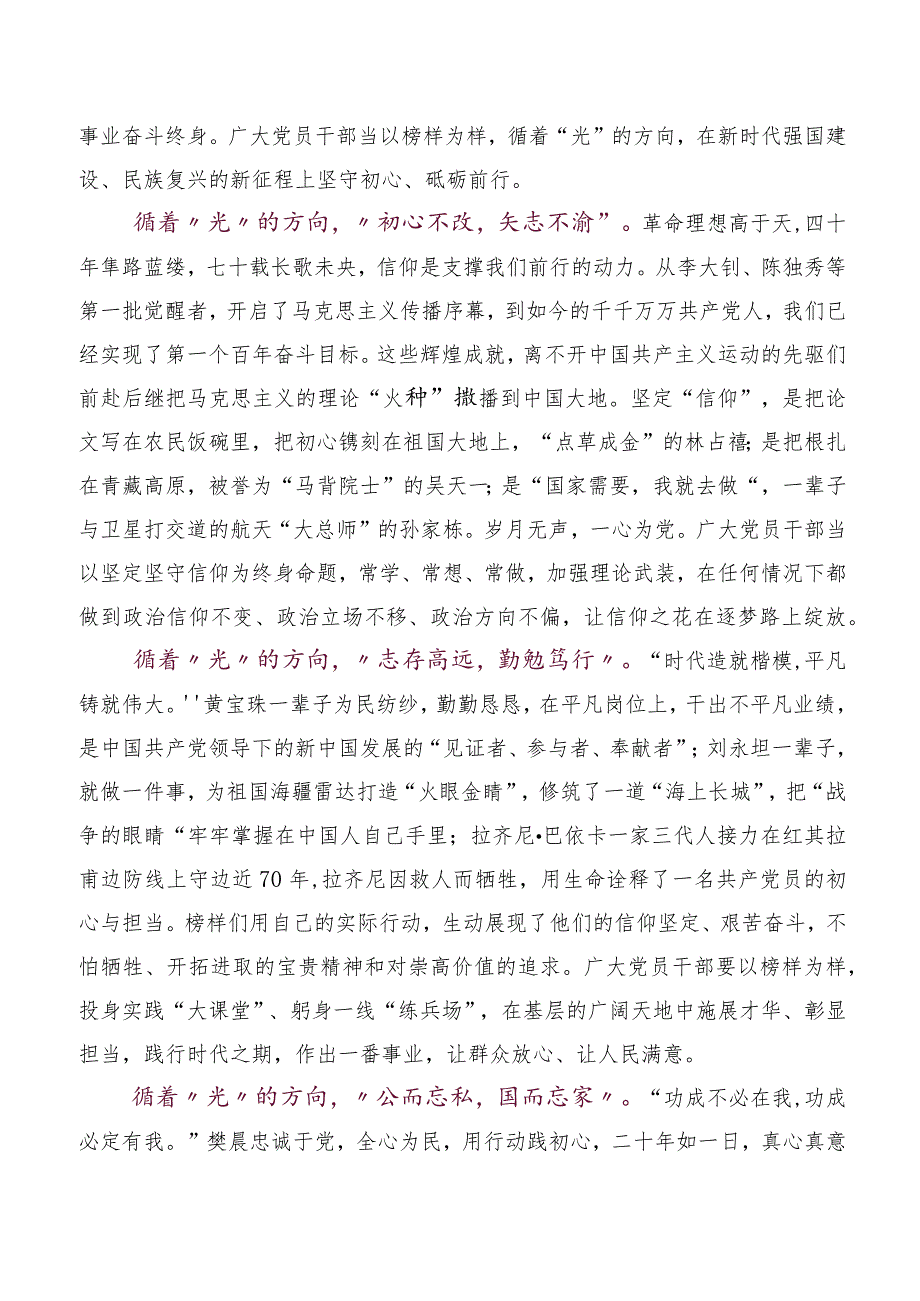 事业奋斗终身。广大党员干部当以榜样为样，循着“光”的方向，在新时代强国建
设、民族复兴的新征程上坚守初心、砥砺前行。
循着〃光〃的方向，〃初心不改，矢志不渝”。革命理想高于天,四十
年隼路蓝缕，七十载长歌未央，信仰是支撑我们前行的动力。从李大钊、陈独秀等
第一批觉醒者，开启了马克思主义传播序幕，到如今的千千万万共产党人，我们已
经实现了第一个百年奋斗目标。这些辉煌成就，离不开中国共产主义运动的先驱们
前赴后继把马克思主义的理论“火种”撒播到中国大地。坚定“信仰”，是把论
文写在农民饭碗里，把初心镌刻在祖国大地上，“点草成金”的林占禧；是把根扎
在青藏高原，被誉为“马背院士”的吴天一；是“国家需要，我就去做“，一辈子
与卫星打交道的航天“大总师”的孙家栋。岁月无声，一心为党。广大党员干部当
以坚定坚守信仰为终身命题，常学、常想、常做，加强理论武装，在任何情况下都
做到政治信仰不变、政治立场不移、政治方向不偏，让信仰之花在逐梦路上绽放。
循着〃光〃的方向，〃志存高远，勤勉笃行〃。“时代造就楷模,平凡
铸就伟大。''黄宝珠一辈子为民纺纱，勤勤恳恳，在平凡岗位上，干出不平凡业绩，
是中国共产党领导下的新中国发展的“见证者、参与者、奉献者”；刘永坦一辈子，
就做一件事，为祖国海疆雷达打造“火眼金睛”，修筑了一道“海上长城”，把“战
争的眼睛“牢牢掌握在中国人自己手里；拉齐尼•巴依卡一家三代人接力在红其拉
甫边防线上守边近 70 年,拉齐尼因救人而牺牲，用生命诠释了一名共产党员的初
心与担当。榜样们用自己的实际行动，生动展现了他们的信仰坚定、艰苦奋斗，不
怕牺牲、开拓进取的宝贵精神和对崇高价值的追求。广大党员干部要以榜样为样，
投身实践“大课堂”、躬身一线“练兵场”，在基层的广阔天地中施展才华、彰显
担当，践行时代之期，作出一番事业，让群众放心、让人民满意。
循着〃光〃的方向，〃公而忘私，国而忘家〃。“功成不必在我,功成
必定有我。”樊晨忠诚于党，全心为民，用行动践初心，二十年如一日，真心真意